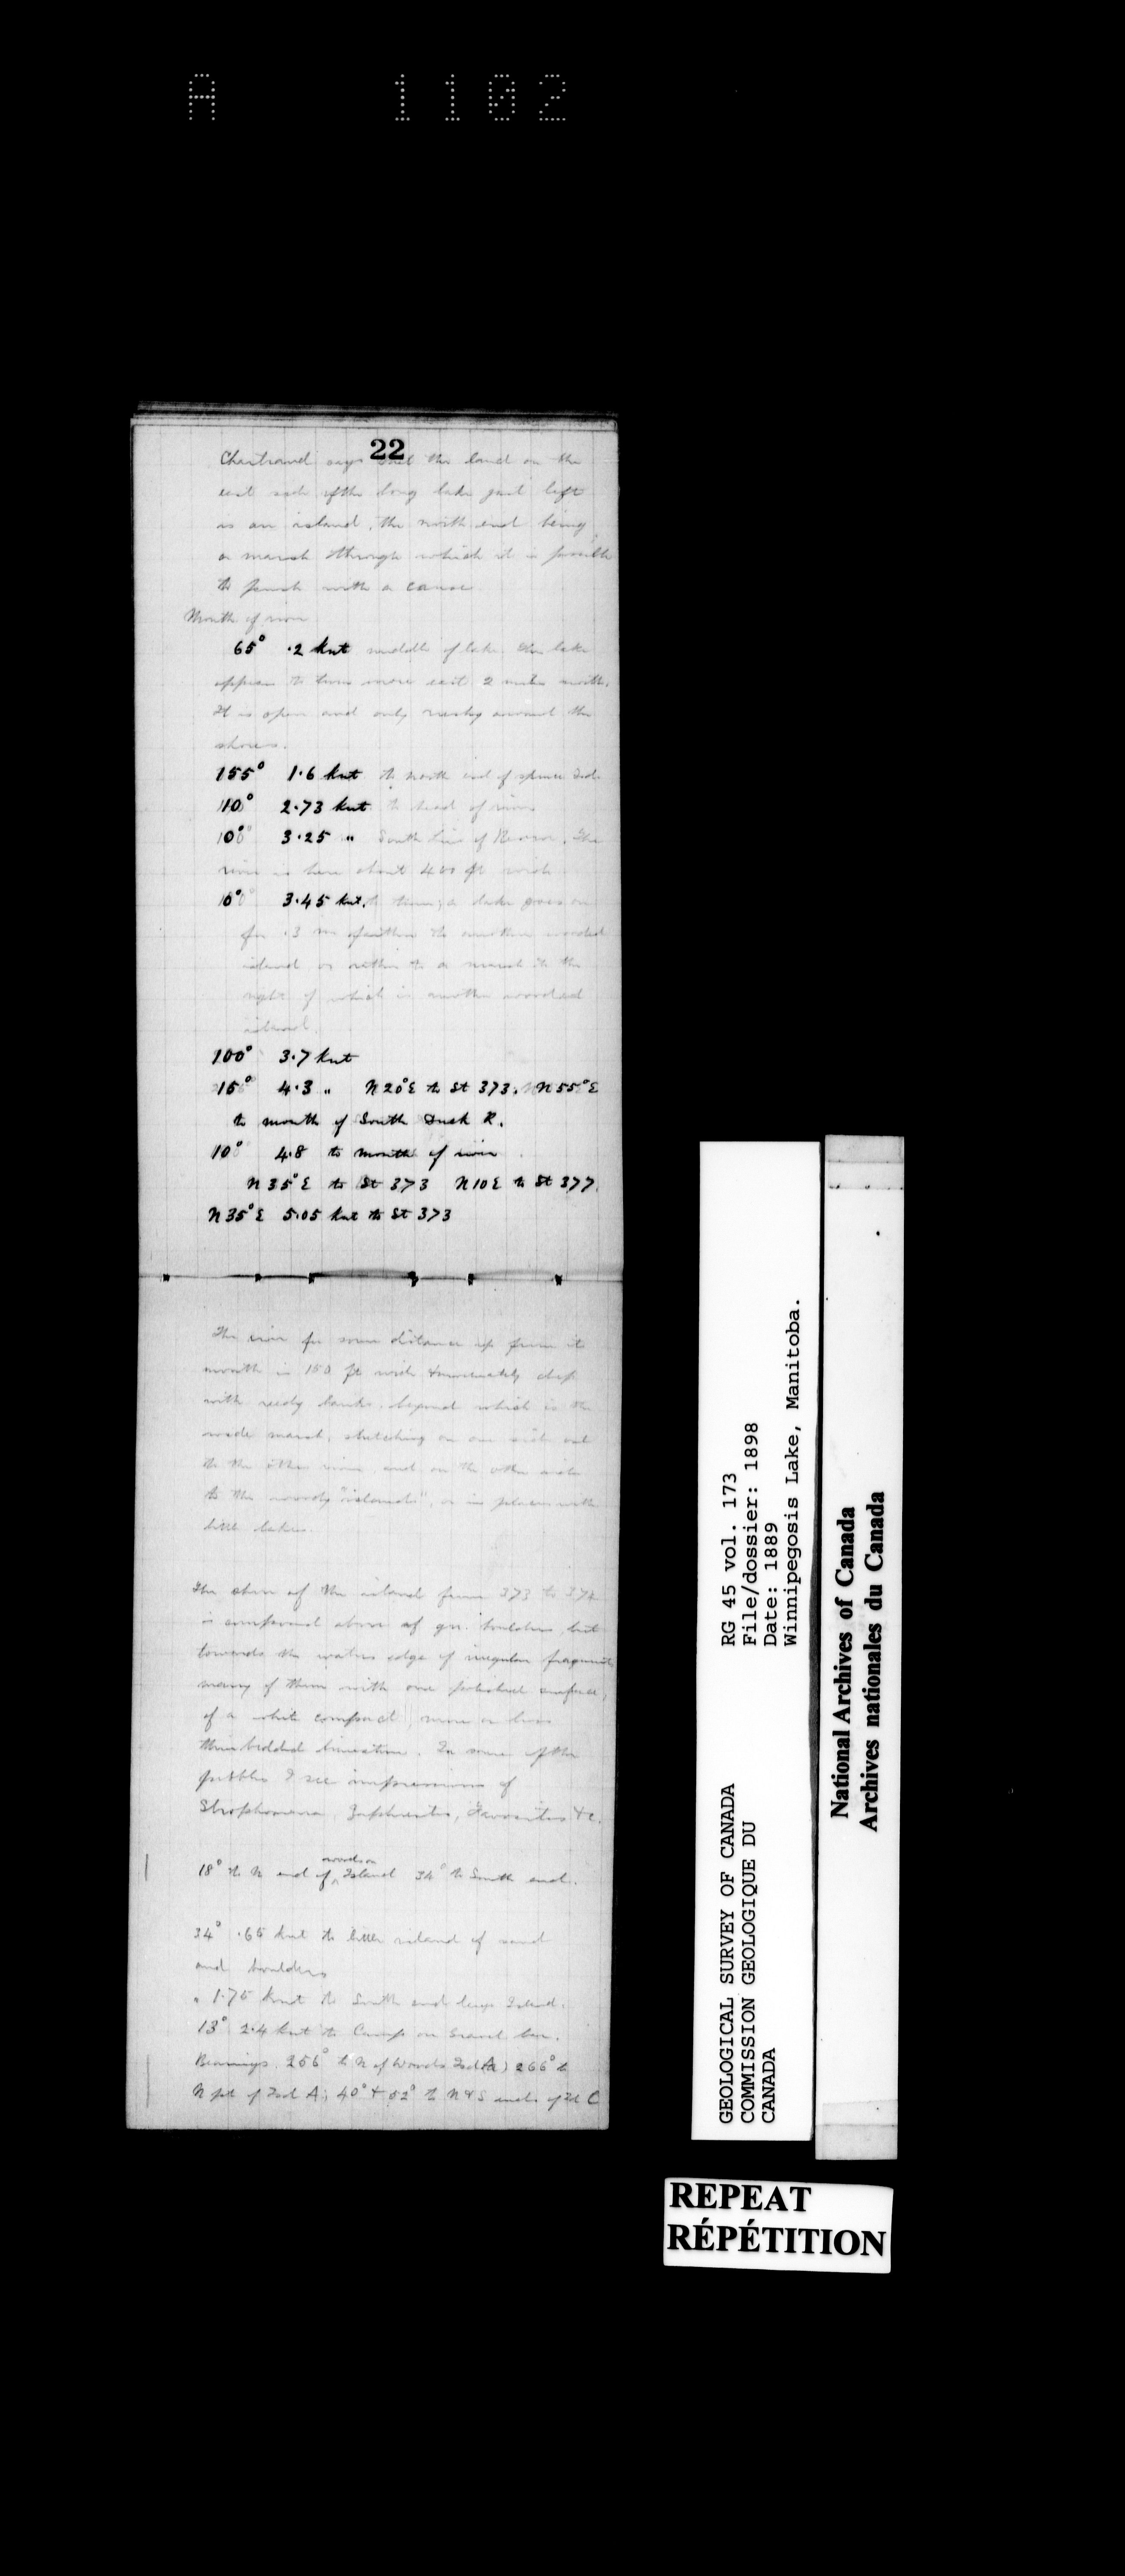 A 1102
22
Chartrand says that the land on the
east side of the long lake just left
is an island, the north end being
a marsh through which it is possible
to push with a canoe
Mouth of river
65° .2 knt middle of lake. The lake
appears to turn more east 2 miles north.
It is open and only rushy around the
shores.
155° 1.6 knt to north end of spruce Isd.
110° 2.73 knt to head of river
100° 3.25 " South line of Reserve. The
river is here about 400 ft wide
3.45 knt.
for .3 m farther to another wooded
island or rather to a marsh to the
right of which is another wooded
island.
100° 3.7 knt
4.3 " N20°E to St 373. N55°E
to mouth of South Duck R.
10° 4.8 to mouth of river
N35°E to St 373 N10E to St 377
N35°E 5.05 knt to St 373
The river for some distance up from its
mouth is 150 ft wide & moderately deep
with reedy banks, beyond which is the
wide marsh, stretching on one side out
to the other river, and on the other side
to the woody "islands", or in places with
little lakes.
The shore of the island from 373 to 374
is composed above of gn. boulders, but
towards the waters edge of irregular fragments
many of them with one polished surface,
of a white compact, more or less
thin bedded limestone. In some of the
pebbles I see impressions of
Strophomena, Zaphrentis, Favosites &c.
18° to N end of wooded Island 34° to South end.
34° .65 knt to little island of sand
and boulders
" 1.75 knt to South end large Island.
13° 2.4 knt to Camp on Gravel bar.
Bearings. 256° to N of Woods Isd (A) 266° to
N pt of Isd A; 40° & 52° to N & S ends of Isd C
GEOLOGICAL SURVEY OF CANADA
COMMISSION GEOLOGIQUE DU
CANADA
RG 45 vol. 173
File/dossier: 1898
Date: 1889
Winnipegosis Lake, Manitoba.
National Archives of Canada
Archives nationales du Canada
REPEAT
RÉPÉTITION